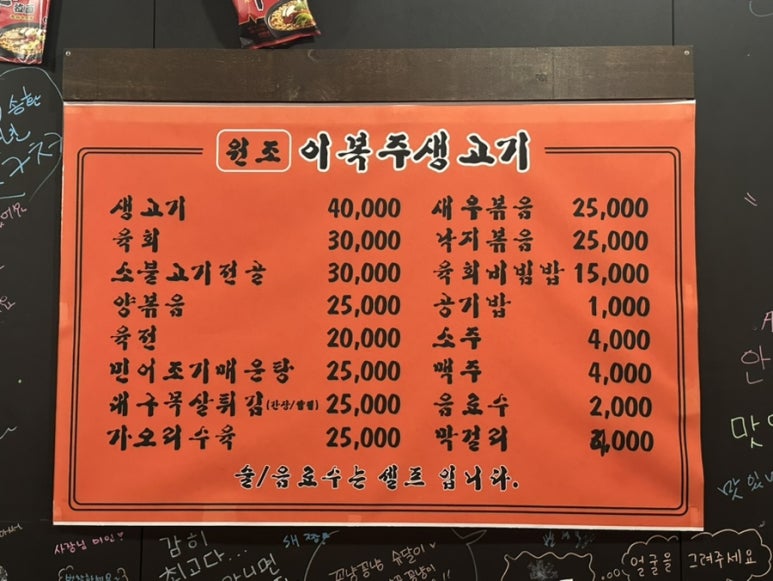 원조 이북주생고기
생고기 40,000
육회 30,000
소불고기전골 30,000
양볶음 25,000
육전 20,000
민어조기매운탕 25,000
대구목살튀김(간장/칠리) 25,000
가오리수육 25,000
새우볶음 25,000
낙지볶음 25,000
육회비빔밥 15,000
공기밥 1,000
소주 4,000
맥주 4,000
음료수 2,000
막걸리 4,000
술/음료수는 셀프 입니다.
사장님 미인♥
감히
최고다...
얼굴을 그려주세요